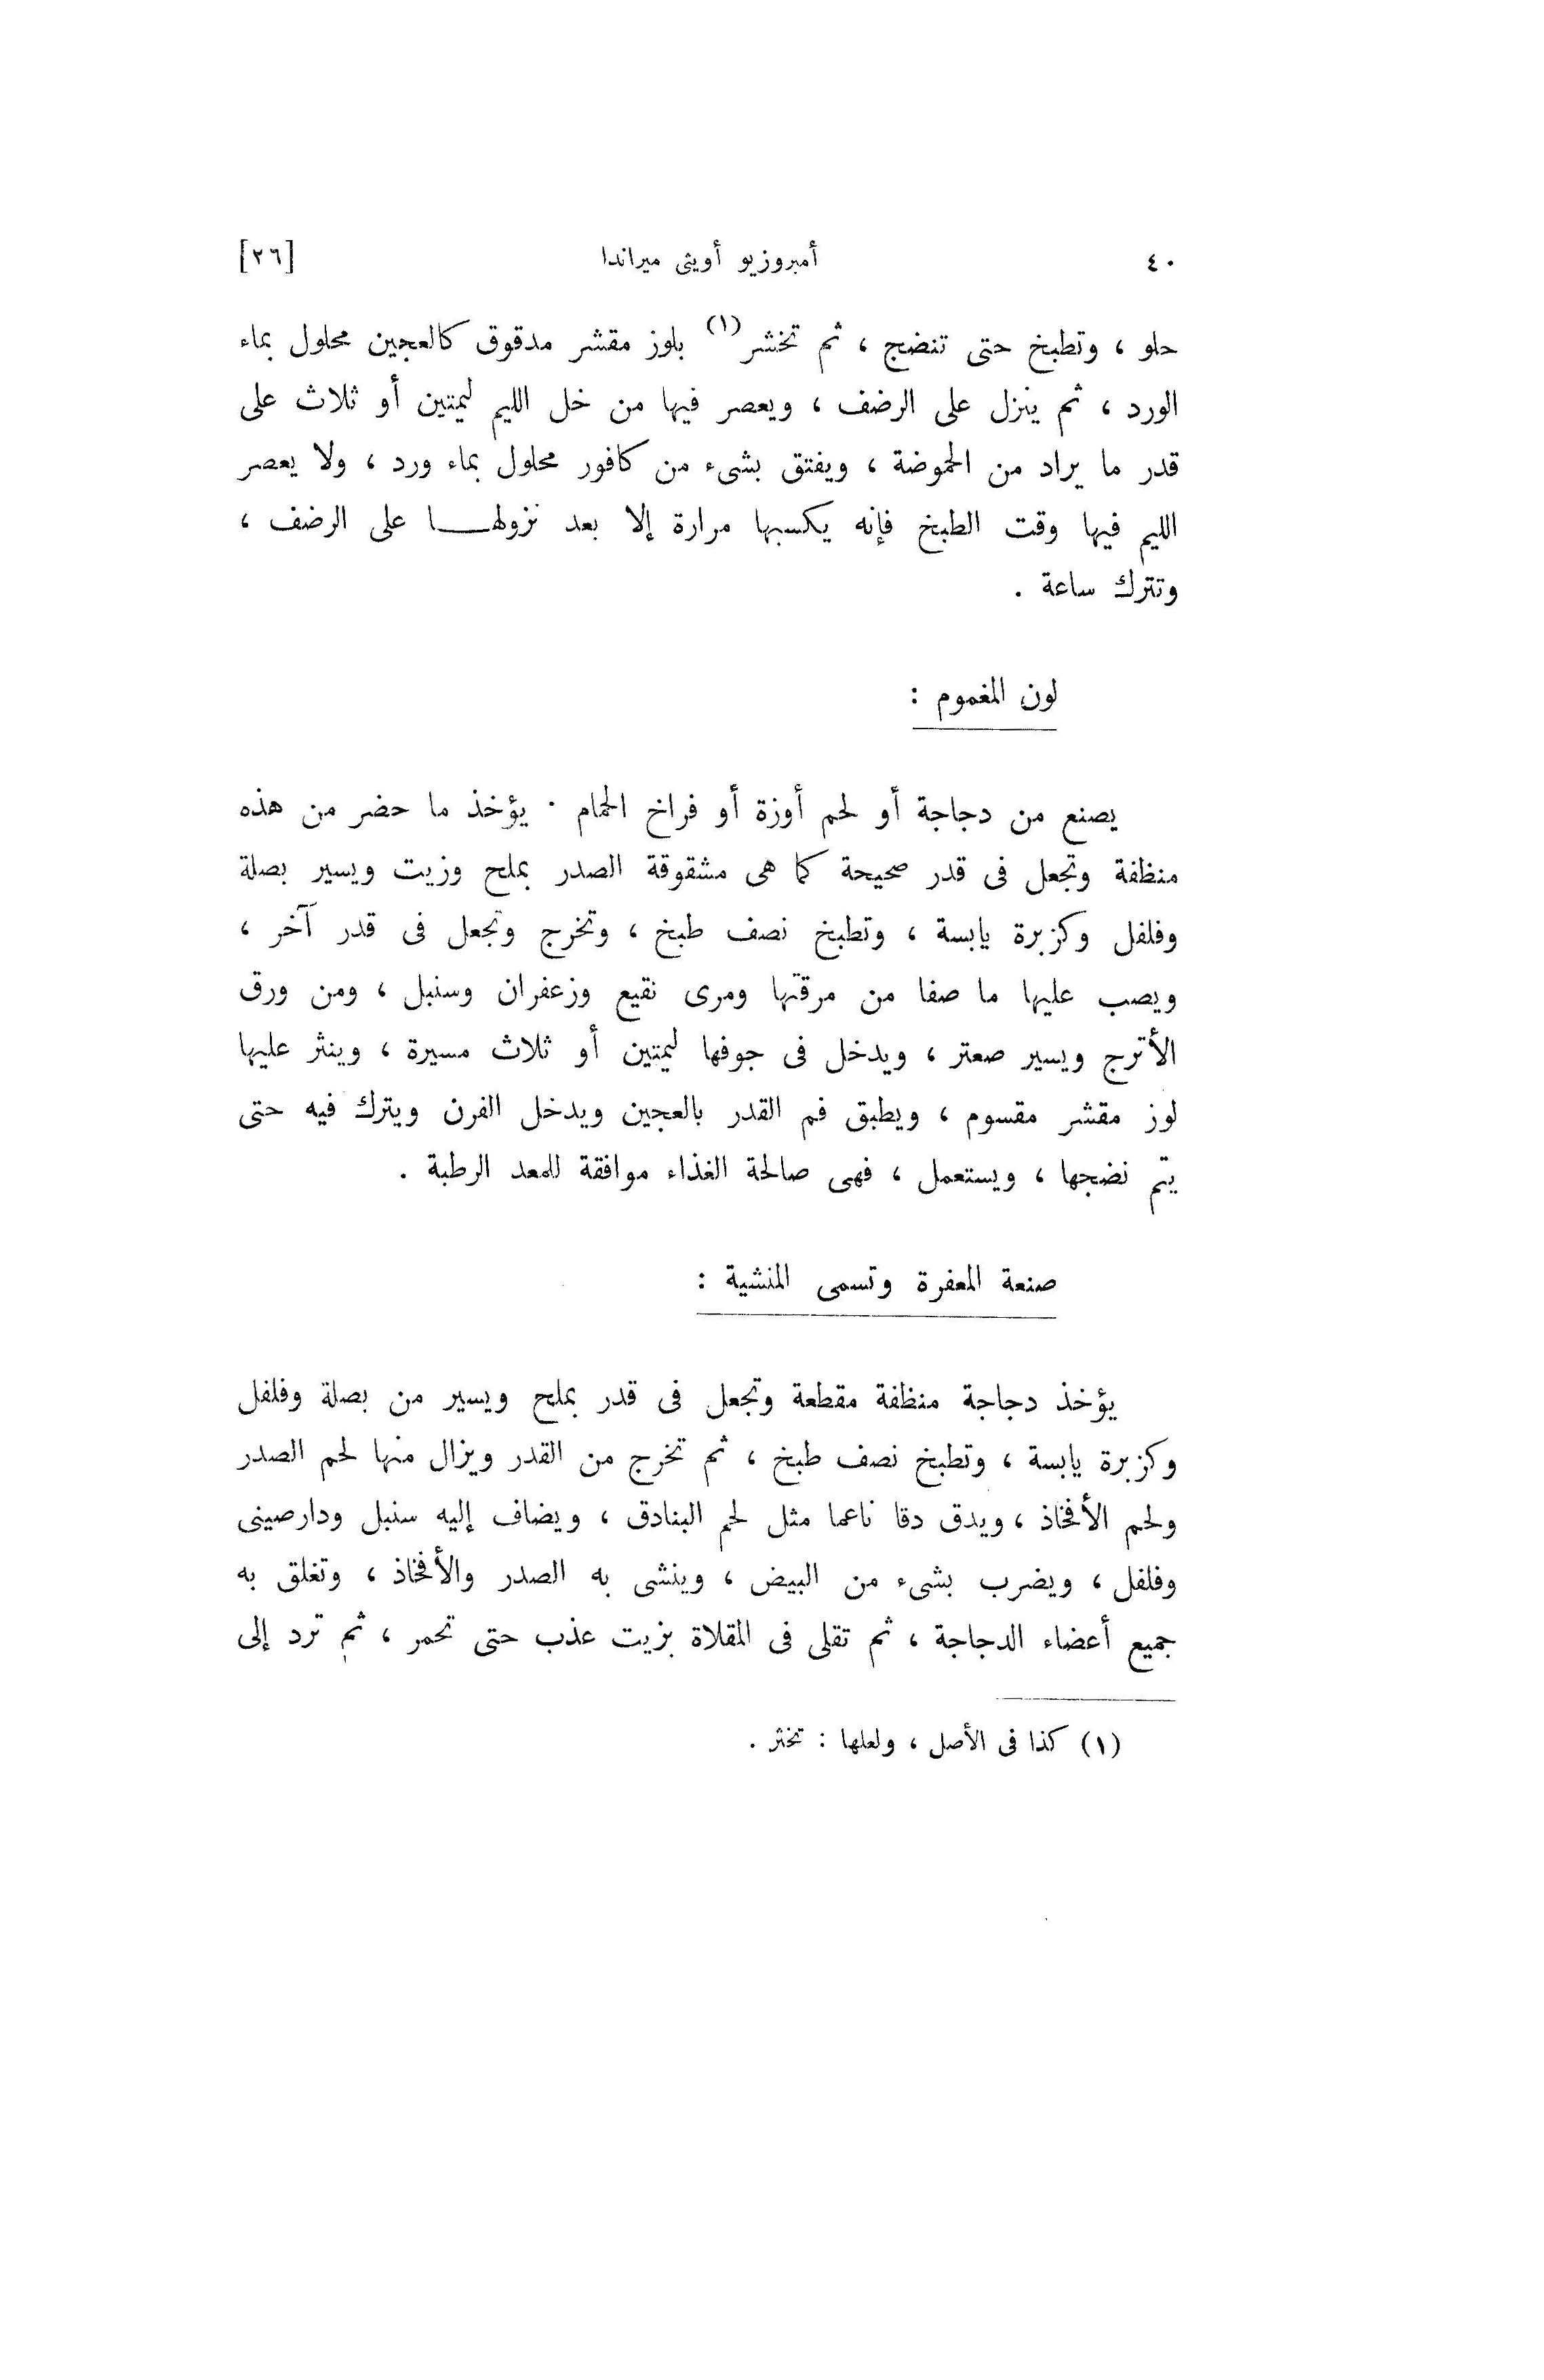 ٤٠ أمبروزيو أويثى ميراندا [٢٦]
حلو ، وتطبخ حتى تنضج ، ثم تخشر(١) بلوز مقشر مدقوق كالعجين محلول بماء
الورد ، ثم ينزل على الرضف ، ويعصر فيها من خل الليم ليمتين أو ثلاث على
قدر ما يراد من الحموضة ، ويفتق بشىء من كافور محلول بماء ورد ، ولا يعصر
الليم فيها وقت الطبخ فإنه يكسبها مرارة إلا بعد نزولها على الرضف ،
وتترك ساعة .
لون المغموم :
يصنع من دجاجة أو لحم أوزة أو فراخ الحمام . يؤخذ ما حضر من هذه
منظفة وتجعل فى قدر صحيحة كما هى مشقوقة الصدر بملح وزيت ويسير بصلة
وفلفل وكزبرة يابسة ، وتطبخ نصف طبخ ، وتخرج وتجعل فى قدر آخر ،
ويصب عليها ما صفا من مرقتها ومرى نقيع وزعفران وسنبل ، ومن ورق
الأترج ويسير صعتر ، ويدخل فى جوفها ليمتين أو ثلاث مسيرة ، وينثر عليها
لوز مقشر مقسوم ، ويطبق فم القدر بالعجين ويدخل الفرن ويترك فيه حتى
يتم نضجها ، ويستعمل ، فهى صالحة الغذاء موافقة للمعد الرطبة .
صنعة المعفرة وتسمى المنشية :
يؤخذ دجاجة منظفة مقطعة وتجعل فى قدر بملح ويسير من بصلة وفلفل
وكزبرة يابسة ، وتطبخ نصف طبخ ، ثم تخرج من القدر ويزال منها لحم الصدر
ولحم الأفخاذ ، ويدق دقا ناعما مثل لحم البنادق ، ويضاف إليه سنبل ودارصينى
وفلفل ، ويضرب بشىء من البيض ، وينشى به الصدر والأفخاذ ، وتغلق به
جميع أعضاء الدجاجة ، ثم تقلى فى المقلاة بزيت عذب حتى تحمر ، ثم ترد إلى
(١) كذا فى الأصل ، ولعلها : تخثر .